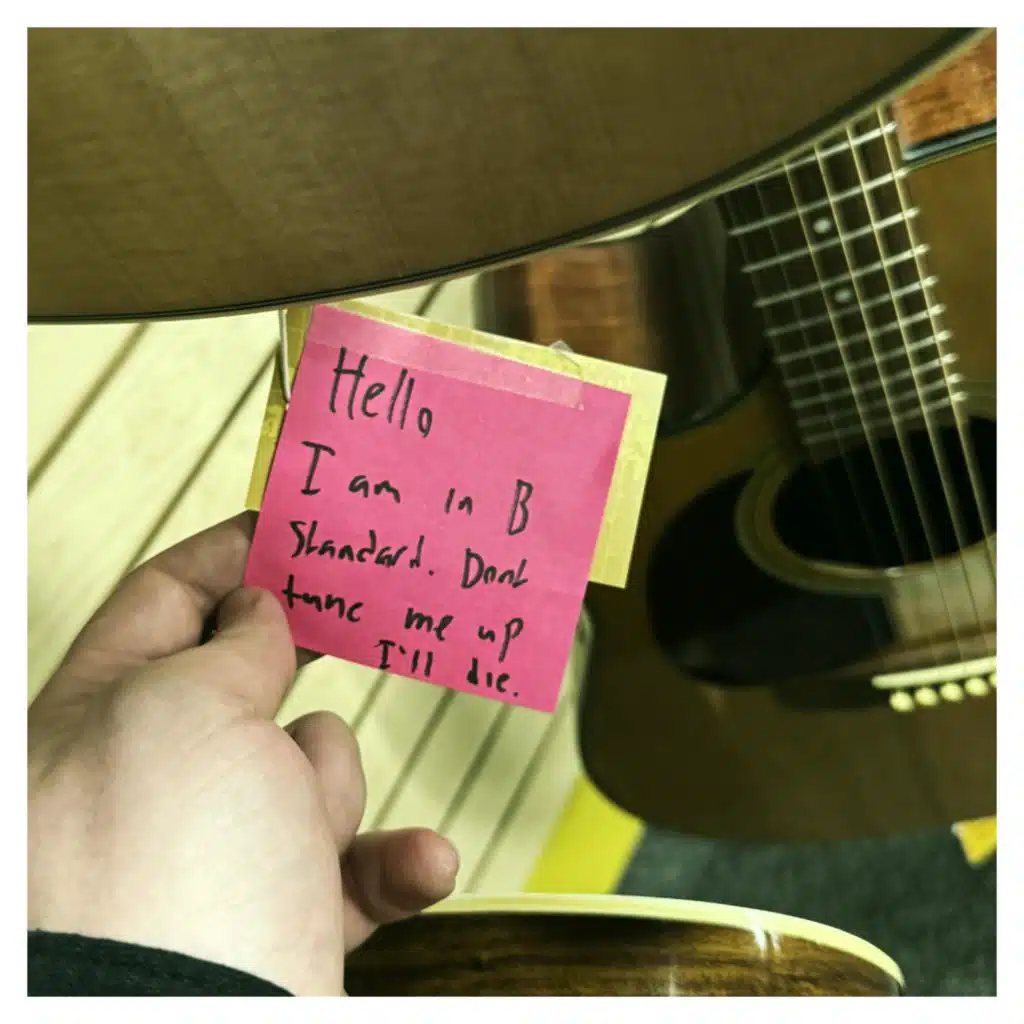 Hello
I am in B
Standard. Dont
tune me up
I'll die.